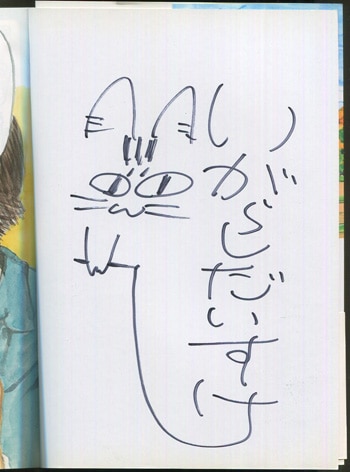 いがらしだいすけ